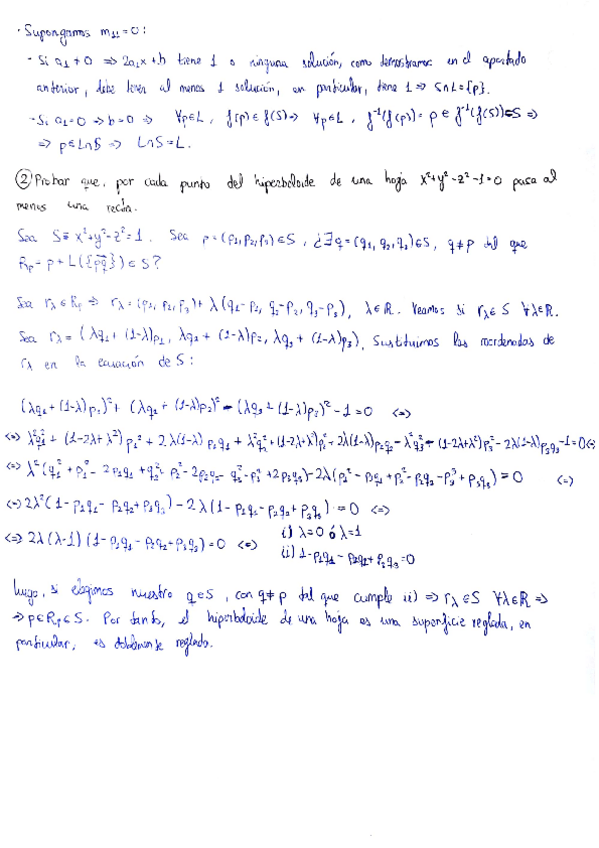 · Supongamos m₁₁=0:
- Si a₁≠0 ⇒ 2a₁x+b tiene 1 o ninguna solución, como demostramos en el apartado
anterior, debe tener al menos 1 solución, en particular, tiene 1 ⇒ S∩L={p}.
- Si a₁=0 ⇒ b=0 ⇒ ∀p∈L, f(p)∈f(S) ⇒ ∀p∈L, f⁻¹(f(p))=p∈f⁻¹(f(S))=S ⇒
⇒ p∈L∩S ⇒ L∩S=L.
② Probar que, por cada punto del hiperboloide de una hoja x²+y²-z²-1=0 pasa al
menos una recta.
Sea S≡x²+y²-z²=1. Sea p=(p₁,p₂,p₃)∈S, ¿∃q=(q₁,q₂,q₃)∈S, q≠p tal que
Rₚ=p+L({pq})∈S?
Sea r_λ∈Rₚ ⇒ r_λ=(p₁,p₂,p₃)+λ(q₁-p₁,q₂-p₂,q₃-p₃), λ∈ℝ. Veamos si r_λ∈S ∀λ∈ℝ.
Sea r_λ=(λq₁+(1-λ)p₁, λq₂+(1-λ)p₂, λq₃+(1-λ)p₃). Sustituimos las coordenadas de
r_λ en la ecuación de S:
(λq₁+(1-λ)p₁)²+(λq₂+(1-λ)p₂)²-(λq₃+(1-λ)p₃)²-1=0 ⇔
⇔ λ²q₁²+(1-2λ+λ²)p₁²+2λ(1-λ)p₁q₁+λ²q₂²+(1-2λ+λ²)p₂²+2λ(1-λ)p₂q₂-λ²q₃²-(1-2λ+λ²)p₃²-2λ(1-λ)p₃q₃-1=0⇔
⇔ λ²(q₁²+p₁²-2p₁q₁+q₂²+p₂²-2p₂q₂-q₃²-p₃²+2p₃q₃)-2λ(p₁²-p₁q₁+p₂²-p₂q₂-p₃²+p₃q₃)=0 ⇔
⇔ 2λ²(1-p₁q₁-p₂q₂+p₃q₃)-2λ(1-p₁q₁-p₂q₂+p₃q₃)=0 ⇔
⇔ 2λ(λ-1)(1-p₁q₁-p₂q₂+p₃q₃)=0 ⇔ i) λ=0 ó λ=1
ii) 1-p₁q₁-p₂q₂+p₃q₃=0
Luego, si elegimos nuestro q∈S, con q≠p tal que cumple ii) ⇒ r_λ∈S ∀λ∈ℝ ⇒
⇒ p∈Rₚ⊆S. Por tanto, el hiperboloide de una hoja es una superficie reglada, en
particular, es doblemente reglada.